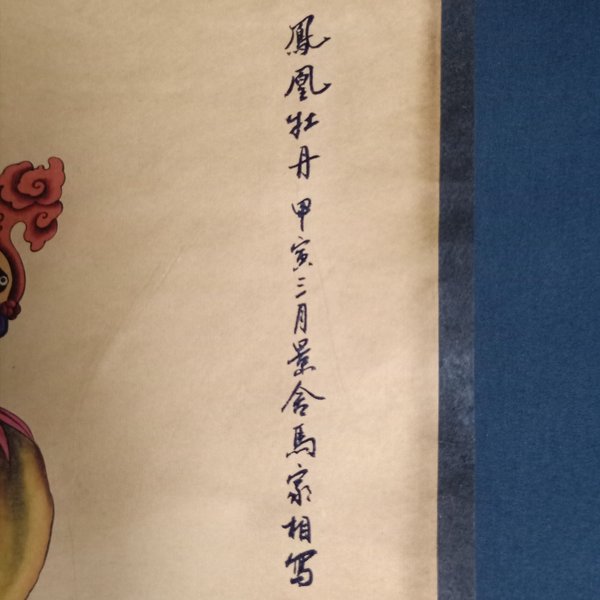 鳳凰牡丹甲寅三月景舍馬家相寫